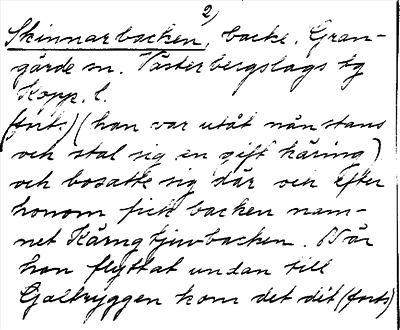 2)
Skinnarbacken, backe. Gran-
gärde sn. Västerbergslags tg
Kopp. l.
(forts.) (han var utåt nån stans
och stal sig en gift käring)
och bosatte sig där och efter
honom fick backen nam-
net Käringtjuvbacken. När
han flyttat undan till
Galtryggen kom det dit (forts)